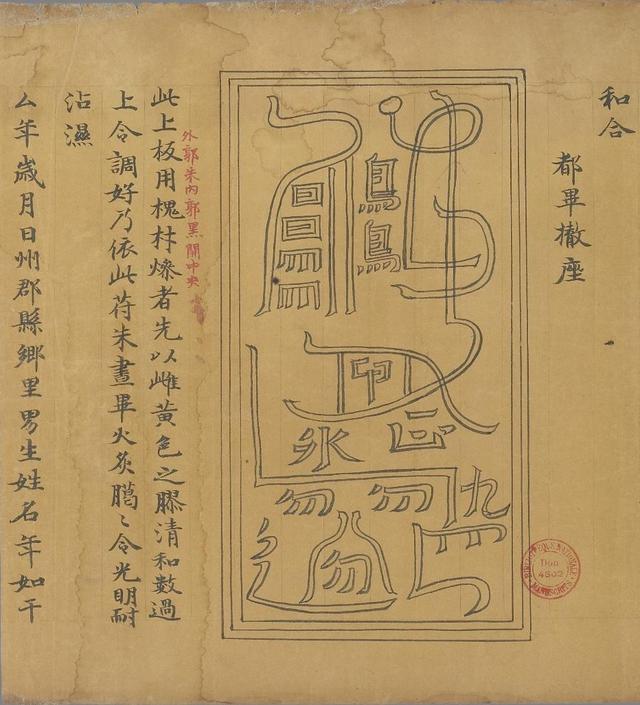 和合
都畢撤座
外郭朱内郭黑開中央
此上板用槐材燥者先以雌黃色之膠清和數過
上令調好乃依此苻朱畫畢火炙臈〻令光明耐
沾濕
厶年歲月日州郡縣鄉里男生姓名年如干
Don
4502
MANUSCRITS